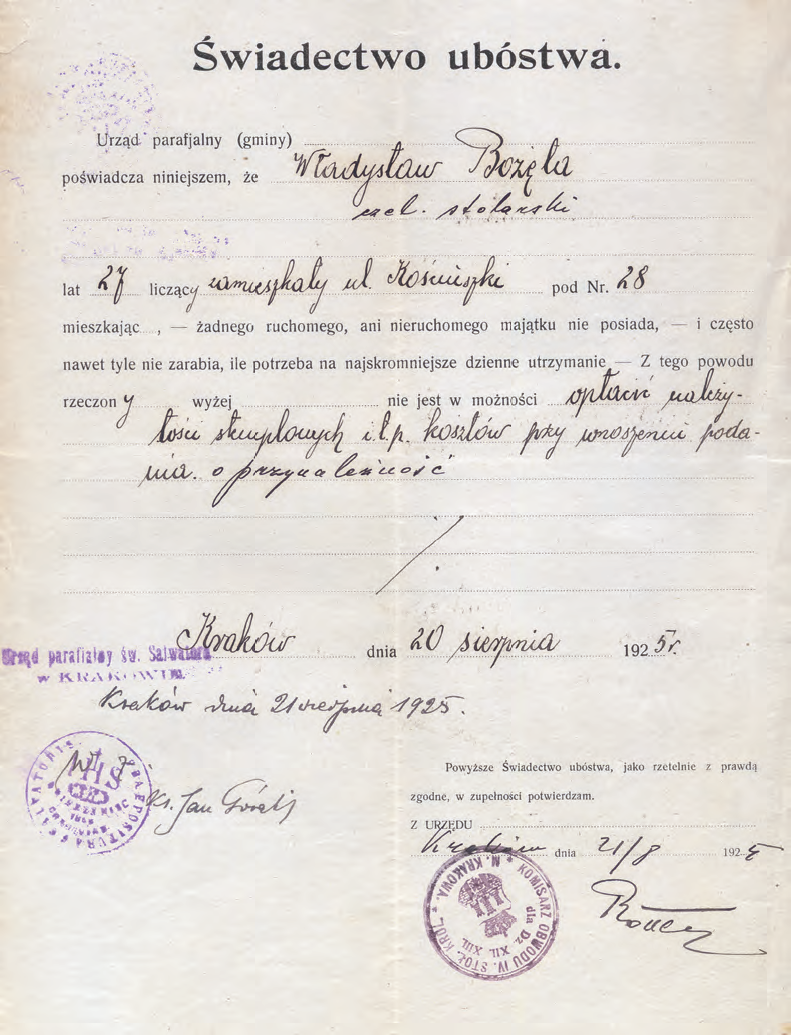 Świadectwo ubóstwa.
Urząd parafjalny (gminy)
poświadcza niniejszem, że Władysław Bozęla
czel. stolarski
lat 27 liczący zamieszkały ul. Kościuszki pod Nr. 28
mieszkając , — żadnego ruchomego, ani nieruchomego majątku nie posiada, — i często
nawet tyle nie zarabia, ile potrzeba na najskromniejsze dzienne utrzymanie — Z tego powodu
rzeczony wyżej nie jest w możności opłacić należy-
tości stemplowych i.t.p. kosztów przy wnoszeniu poda-
nia. o przynależność
Kraków dnia 20 sierpnia 1925 r.
Urząd parafialny św. Salwatora
w KRAKOWIE
Kraków dnia 21 sierpnia 1925.
Powyższe Świadectwo ubóstwa, jako rzetelnie z prawdą
zgodne, w zupełności potwierdzam.
Ks. Jan
Z URZĘDU
Kraków dnia 21/8 1925
KOMISARZ OBWODU IV. STOŁ. KRÓL. M. KRAKOWA.
dla Dz. XII. XIII.